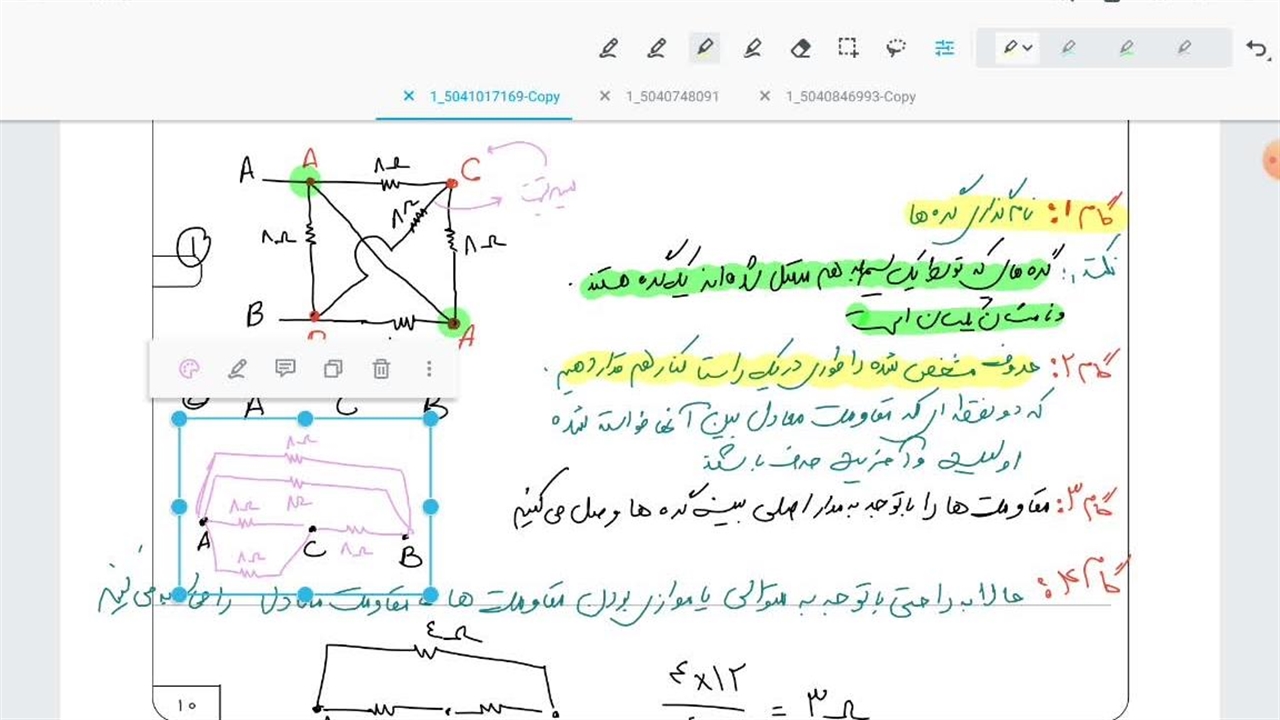 1_5041017169-Copy
1_5040748091
1_5040846993-Copy
A A ۸Ω C
۸Ω
۸Ω ۸Ω
B A
①
گام ۱: نام گذاری گره ها
نکته: گره های که توسط یک سیم به هم متصل شده اند یک گره هستند.
و نامشان یکسان است
گام ۲: حروف مشخص شده را طوری در یک راستا کنار هم قرار دهیم.
که دو نقطه ای که مقاومت معادل بین آنها خواسته شده
اولین و آخرین حرف باشند
گام ۳: مقاومت ها را با توجه به مدار اصلی بین گره ها وصل می کنیم
A C B
۸Ω
۸Ω
۸Ω
A C ۸Ω B
۸Ω
گام ۴: حالا به راحتی با توجه به متوالی یا موازی بودن مقاومت ها مقاومت معادل را
۴Ω
۴×۱۲
= ۳Ω
۱۰